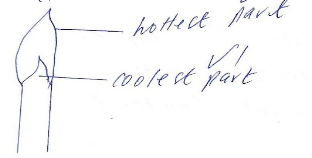 hottest part
coolest part